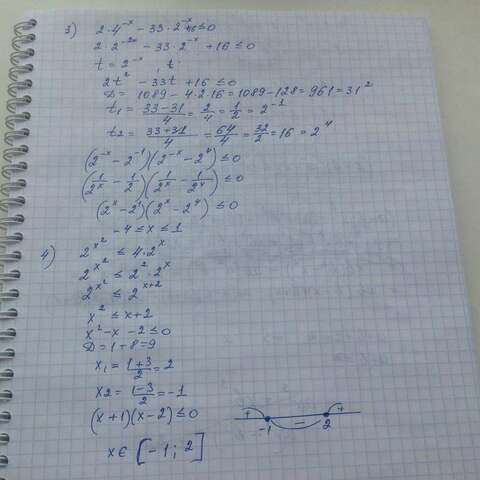 3) 2·4^-x − 33·2^-x +16 ≤ 0
2·2^-2x − 33·2^-x + 16 ≤ 0
t = 2^-x , t
2t² − 33t + 16 ≤ 0
D = 1089 − 4·2·16 = 1089 − 128 = 961 = 31²
t₁ = (33−31)/4 = 2/4 = 1/2 = 2^-1
t₂ = (33+31)/4 = 64/4 = 32/2 = 16 = 2^4
(2^-x − 2^-1)(2^-x − 2^4) ≤ 0
(1/2^x − 1/2)(1/2^x − 1/2^x) ≤ 0
(2^x − 2^1)(2^x − 2^4) ≤ 0
−4 ≤ x ≤ 1
4) 2^x² ≤ 4·2^x
2^x² ≤ 2²·2^x
2^x² ≤ 2^x+2
x² ≤ x+2
x² − x − 2 ≤ 0
D = 1+8 = 9
x₁ = (1+3)/2 = 2
x₂ = (1−3)/2 = −1
(x+1)(x−2) ≤ 0
+ − +
−1 2
x ∈ [−1; 2]